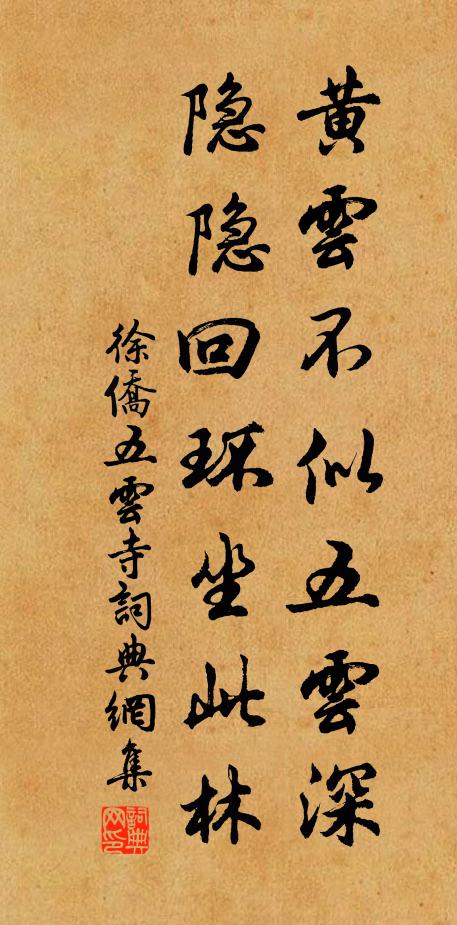 黄雲不似五雲深
隐隐回环坐此林
徐僑五雲寺詞典網集
詞典网印